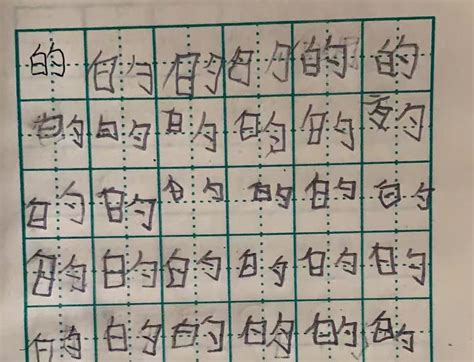 的 的 的 的 的 的
的 的 的 的 的
的 的 的 的 的 的
的 的 的 的 的 的
的 的 的 的 的 的